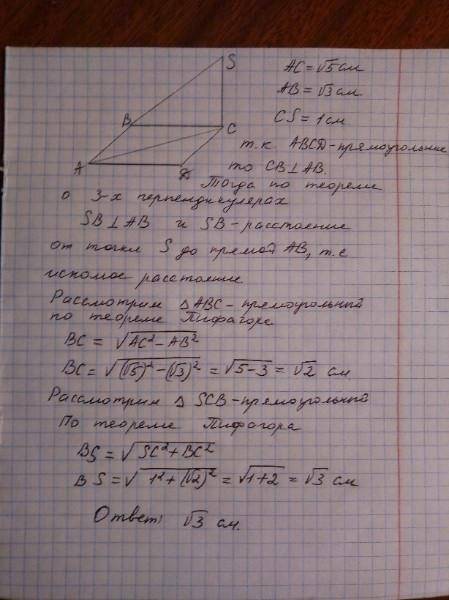 S
AC = √5 см
AB = √3 см
CS = 1 см
B
C
A
D
т.к ABCD - прямоугольник
то CB ⊥ AB.
Тогда по теореме
о 3-х перпендикулярах
SB ⊥ AB и SB - расстояние
от точки S до прямой AB, т.е
искомое расстояние
Рассмотрим △ ABC - прямоугольный
по теореме Пифагора
BC = √AC² - AB²
BC = √(√5)² - (√3)² = √5-3 = √2 см
Рассмотрим △ SCB - прямоугольный
По теореме Пифагора
BS = √SC² + BC²
BS = √1² + (√2)² = √1+2 = √3 см
Ответ: √3 см.